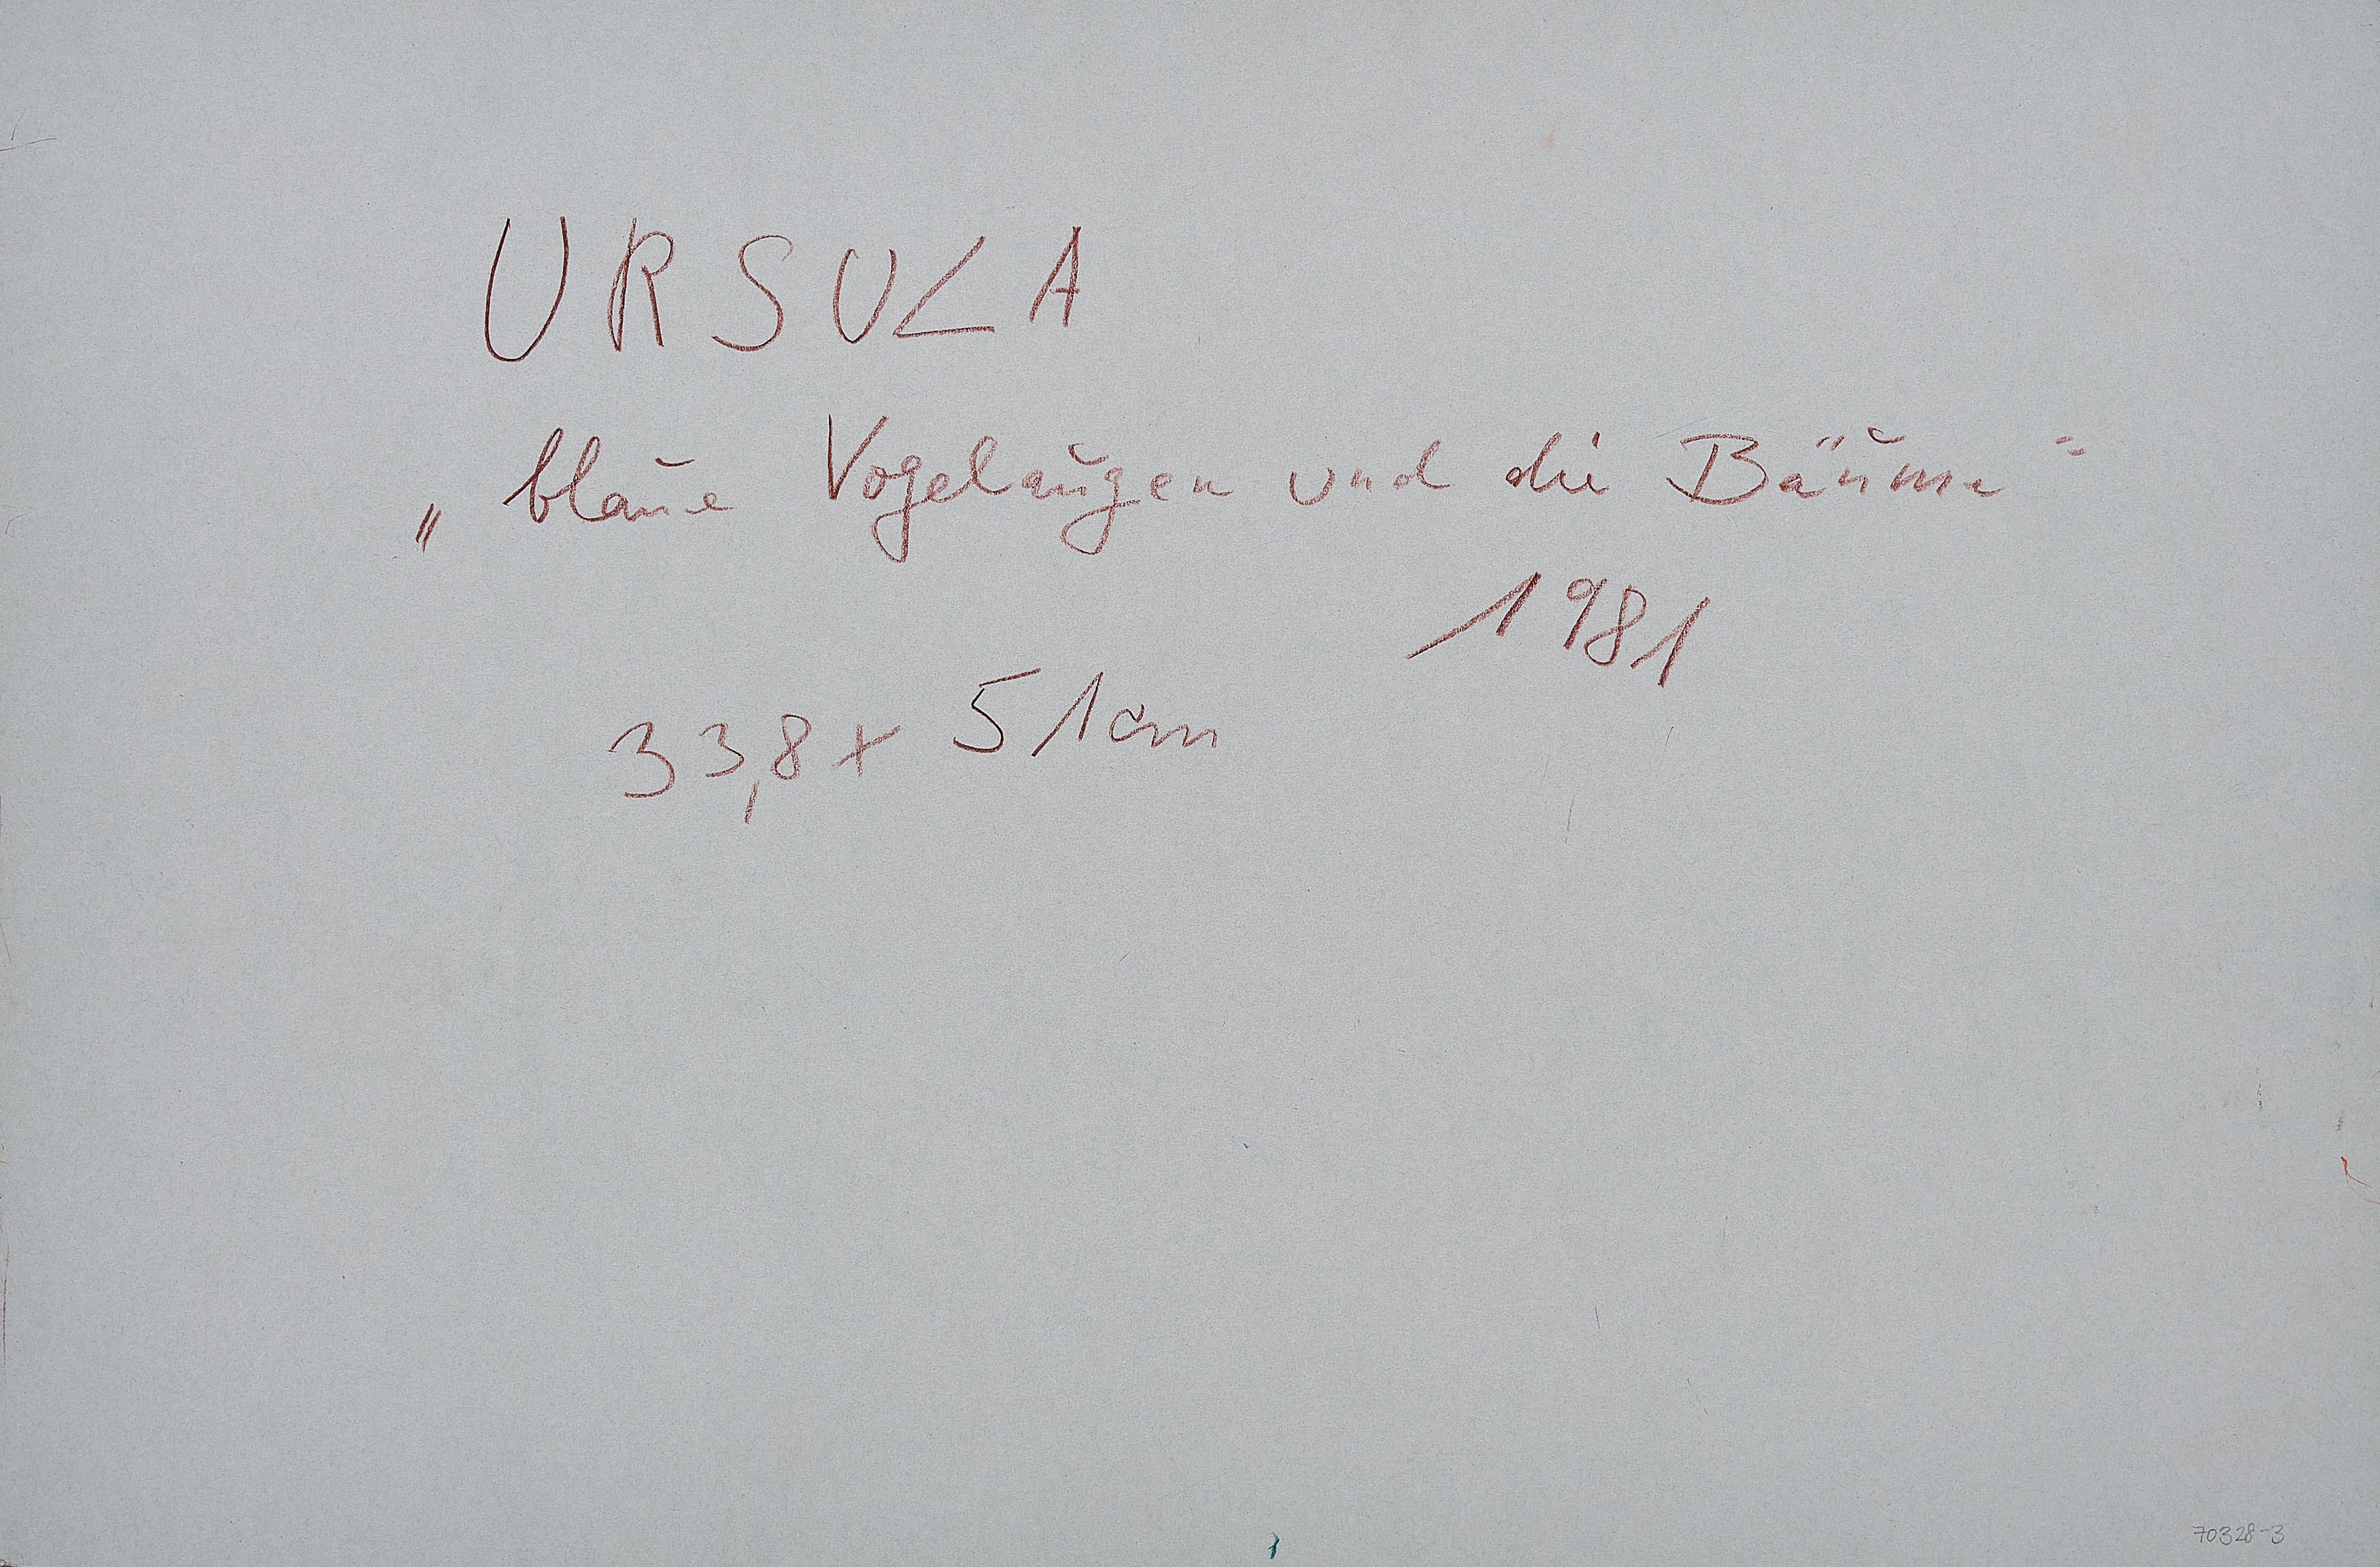 URSULA
„blaue Vogelaugen und die Bäume"
1981
33,8 x 51cm
70328-3